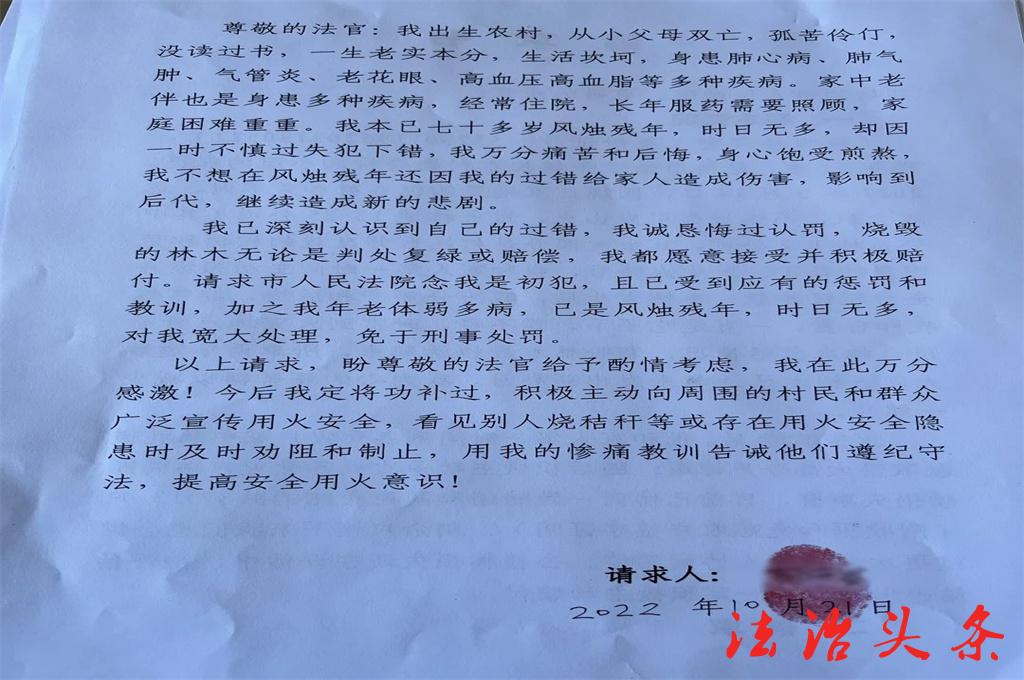 尊敬的法官：我出生农村，从小父母双亡，孤苦伶仃，
没读过书，一生老实本分，生活坎坷，身患肺心病、肺气
肿、气管炎、老花眼、高血压高血脂等多种疾病。家中老
伴也是身患多种疾病，经常住院，长年服药需要照顾，家
庭困难重重。我本已七十多岁风烛残年，时日无多，却因
一时不慎过失犯下错，我万分痛苦和后悔，身心饱受煎熬，
我不想在风烛残年还因我的过错给家人造成伤害，影响到
后代，继续造成新的悲剧。
我已深刻认识到自己的过错，我诚恳悔过认罚，烧毁
的林木无论是判处复绿或赔偿，我都愿意接受并积极赔
付。请求市人民法院念我是初犯，且已受到应有的惩罚和
教训，加之我年老体弱多病，已是风烛残年，时日无多，
对我宽大处理，免于刑事处罚。
以上请求，盼尊敬的法官给予酌情考虑，我在此万分
感激！今后我定将功补过，积极主动向周围的村民和群众
广泛宣传用火安全，看见别人烧秸秆等或存在用火安全隐
患时及时劝阻和制止，用我的惨痛教训告诫他们遵纪守
法，提高安全用火意识！
请求人：
2022 年10月21日
法治头条